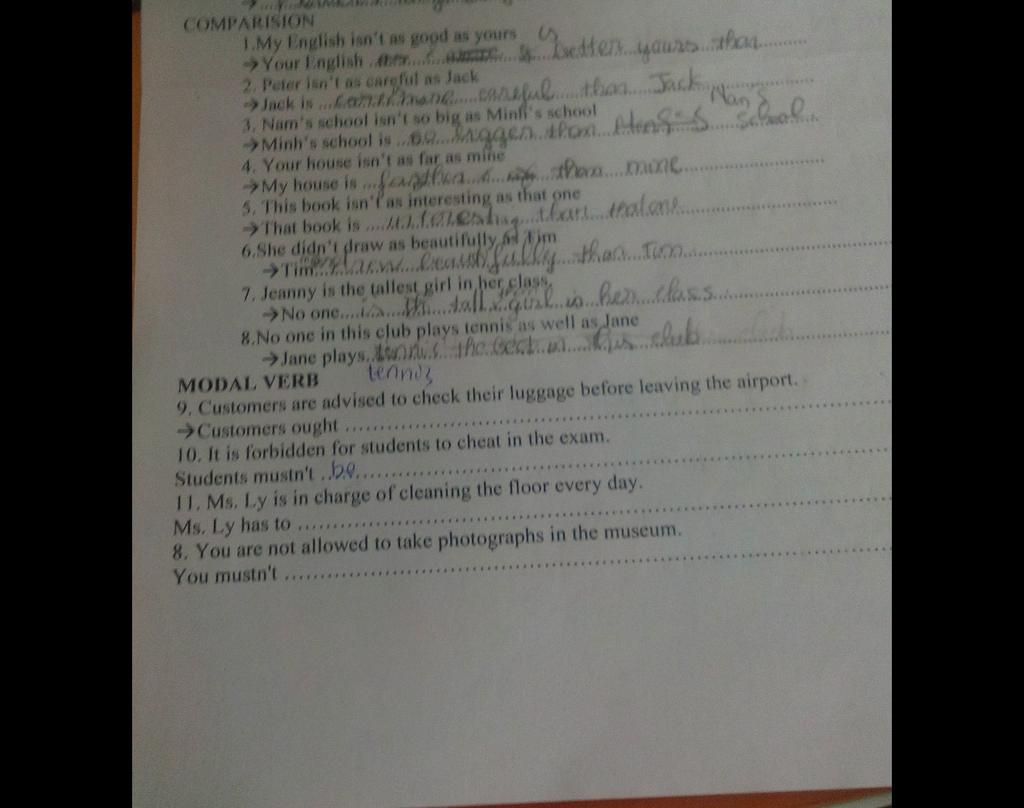 COMPARISION
1.My English isn't as good as yours is
→Your English is better yours than
2. Peter isn't as careful as Jack
→Jack is more careful than Jack
3. Nam's school isn't so big as Minh's school Nam's
→Minh's school is bigger than school
4. Your house isn't as far as mine
→My house is farther than mine
5. This book isn't as interesting as that one
→That book is interesting than
6.She didn't draw as beautifully as Tim
→Tim drew beautifully than Tim
7. Jeanny is the tallest girl in her class.
→No one is the girl in her class
8.No one in this club plays tennis as well as Jane
→Jane plays tennis the best in this club
tennis
MODAL VERB
9. Customers are advised to check their luggage before leaving the airport.
→Customers ought
10. It is forbidden for students to cheat in the exam.
Students mustn't be
11. Ms. Ly is in charge of cleaning the floor every day.
Ms. Ly has to
8. You are not allowed to take photographs in the museum.
You mustn't